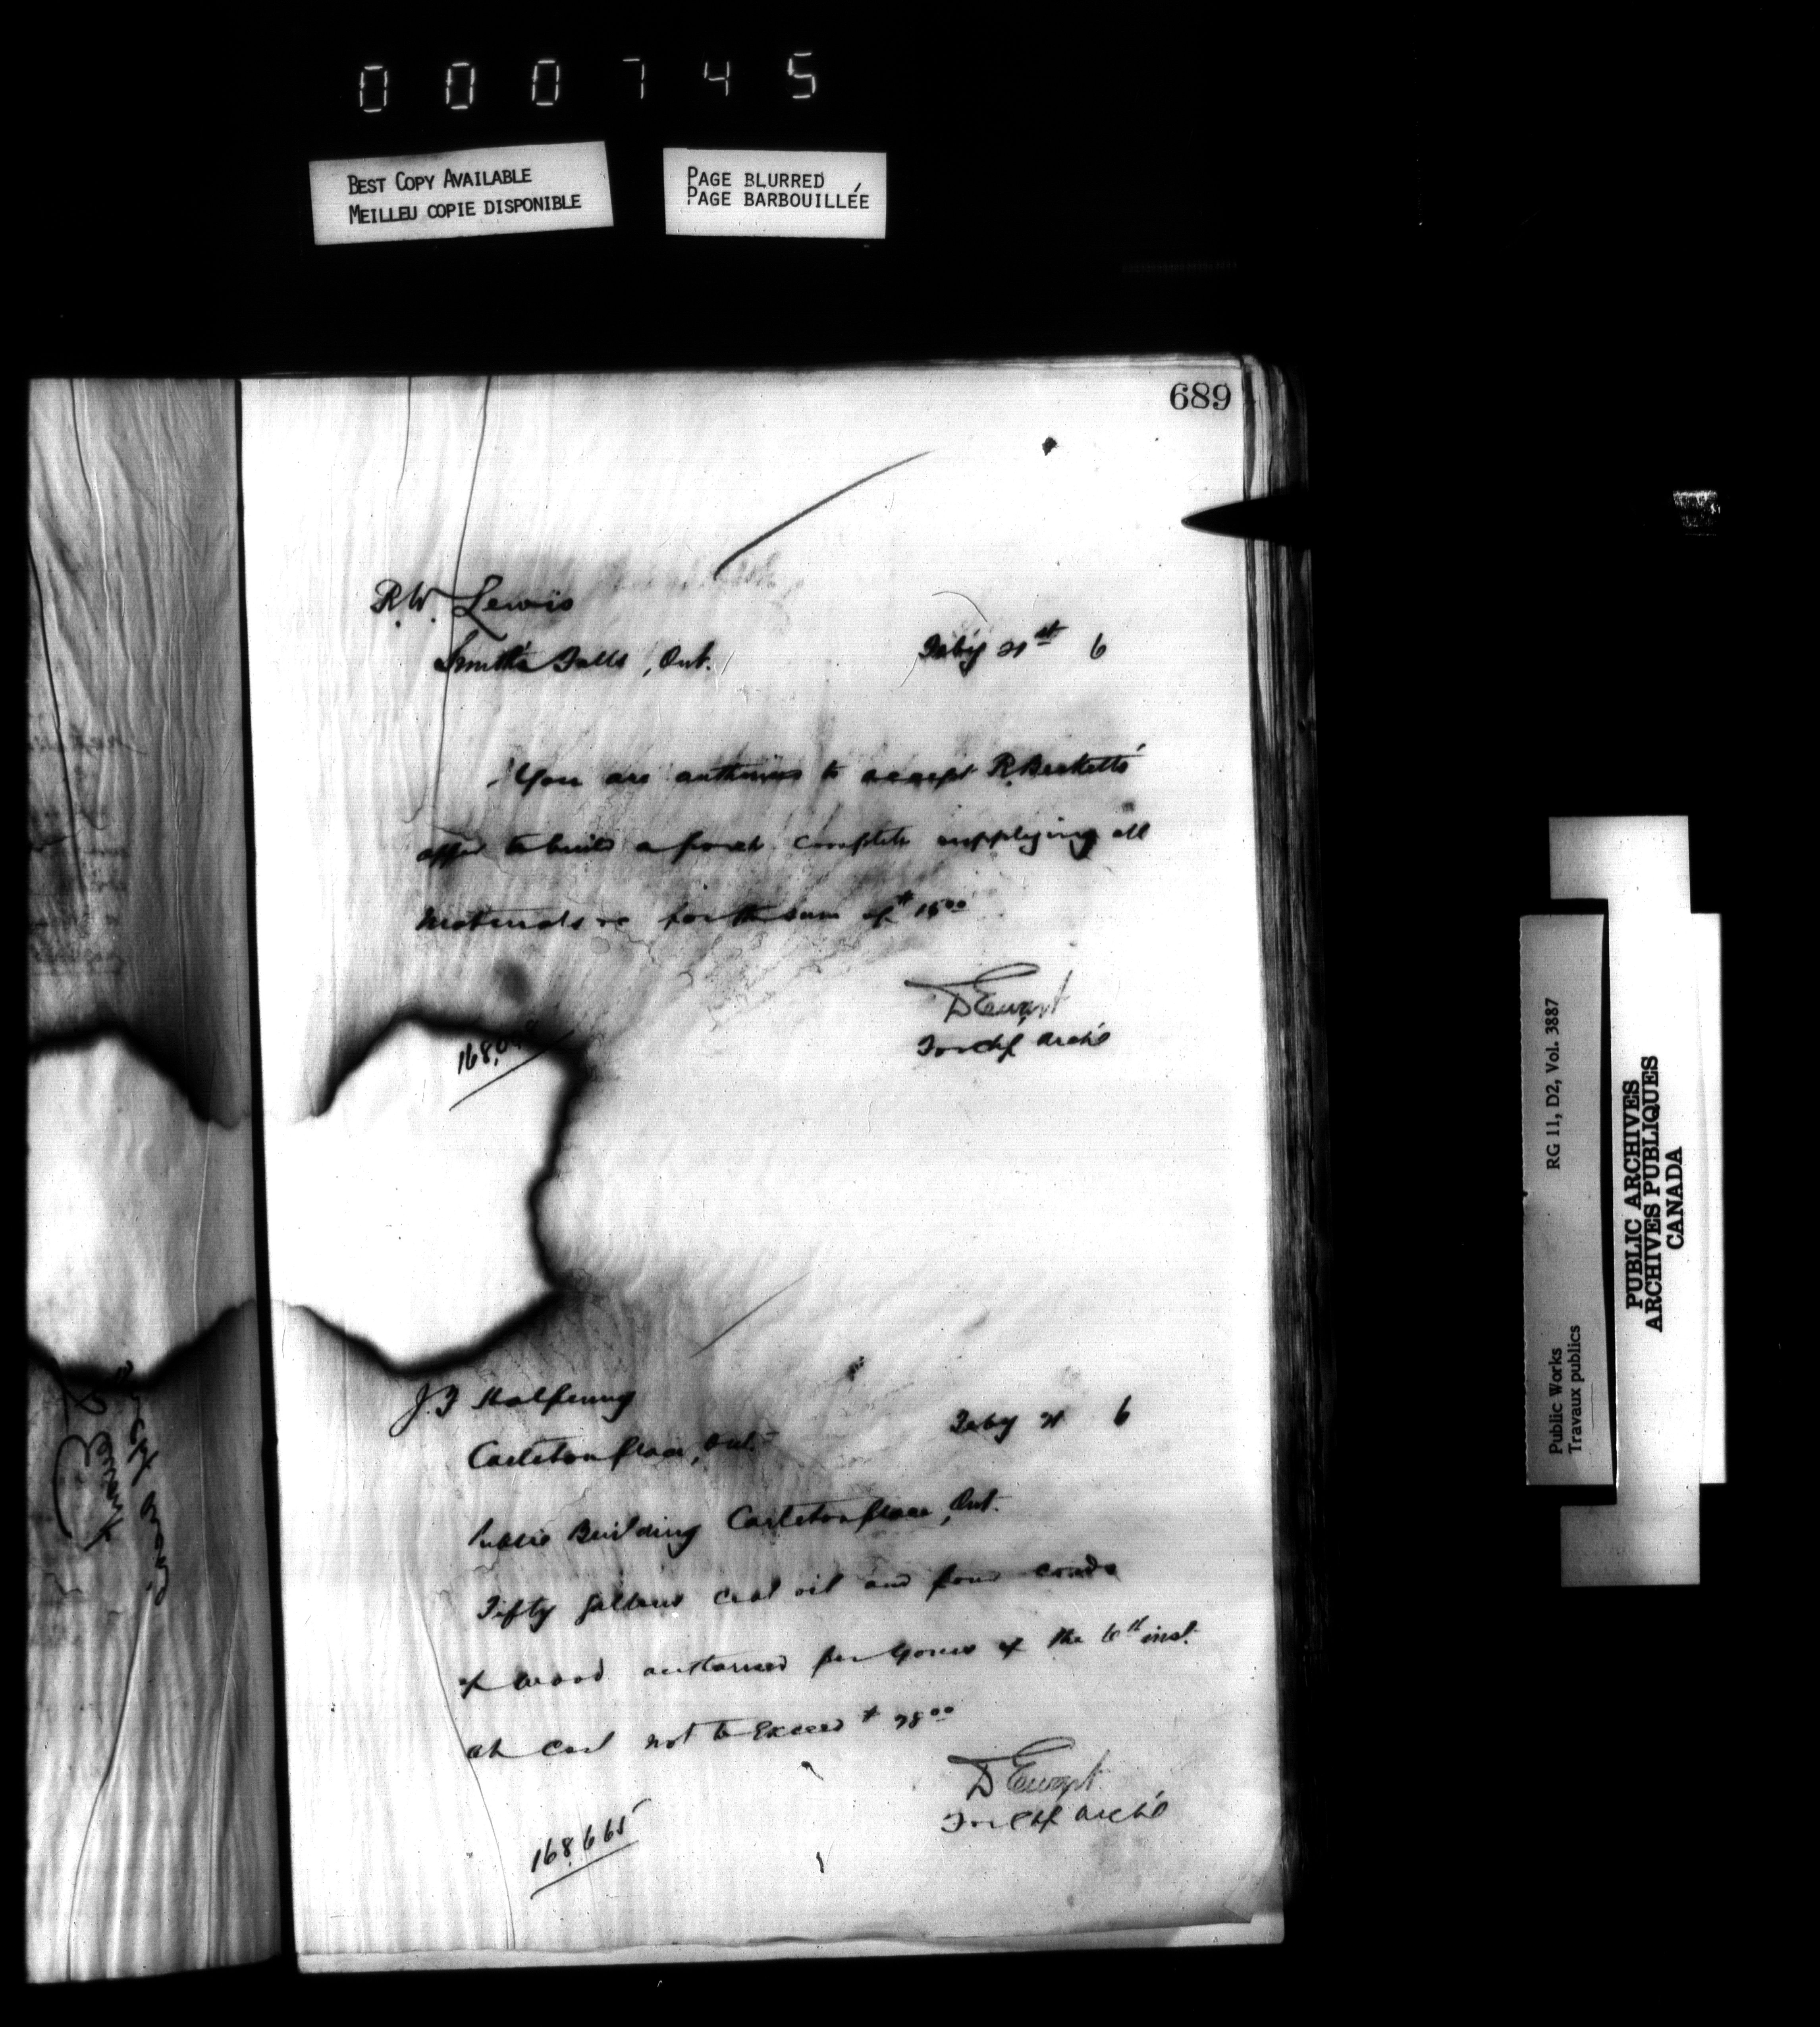 000745
BEST COPY AVAILABLE
MEILLEU COPIE DISPONIBLE
PAGE BLURRED
PAGE BARBOUILLÉE
689
R.W. Lewis
Smith's Falls, Ont.
Feby 21st 6
You are authorised to accept R. Beckett's
offer to build a porch complete supplying all
materials for the sum of $15.00
D Ewart
For Chf Archt
168,6
J.F. Halpenny
Carleton Place, Ont.
Feby 21 6
Public Building Carleton Place, Ont.
Fifty gallons coal oil and four cords
of wood authorised per yours of the 6th inst.
at cost not to exceed $28.00
D Ewart
For Chf Archt
168665
Public Works
Travaux publics
RG 11, D2, Vol. 3887
PUBLIC ARCHIVES
ARCHIVES PUBLIQUES
CANADA